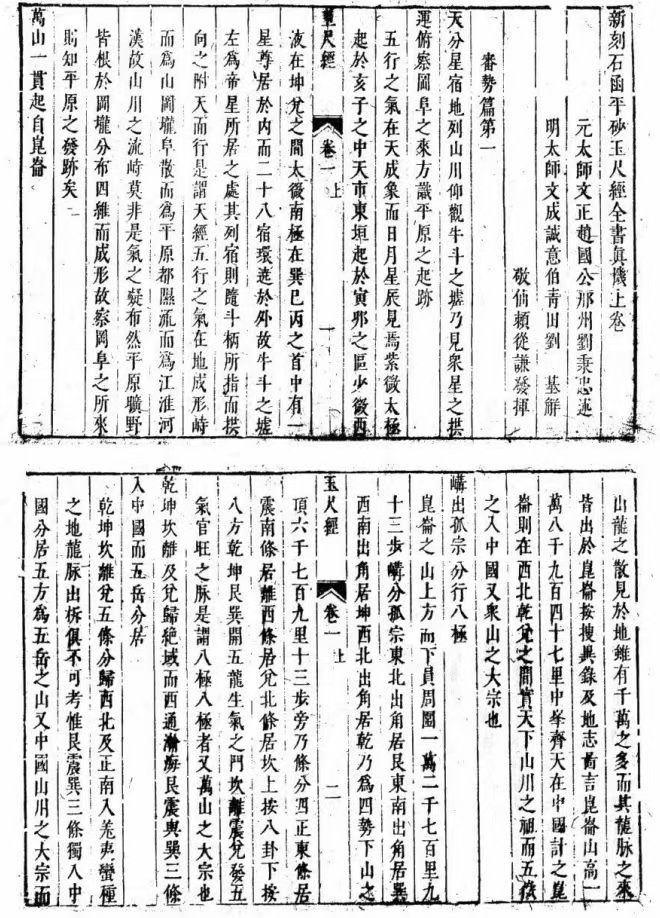 新刻石函平砂玉尺經全書眞機上卷
元太師文正趙國公邢州劉秉忠述
明太師文成誠意伯青田劉　基解
敬仙賴從謙發揮
審勢篇第一
天分星宿地列山川仰觀牛斗之墟乃見衆星之拱
運俯察岡阜之來方識平原之起跡
五行之氣在天成象而日月星辰見焉紫微太極
起於亥子之中天市東垣起於寅卯之區少微西
玉尺經　卷一上　一
液在坤兌之間太微南極在巽巳丙之首中有一
星尊居於內而二十八宿環遶於外故牛斗之墟
左爲帝星所居之處其列宿則隨斗柄所指而拱
向之附天而行是謂天經五行之氣在地成形峙
而爲山岡壠阜散而爲平原都隰流而爲江淮河
漢故山川之流峙莫非是氣之凝布然平原曠野
皆根於岡壠分布四維而成形故察岡阜之所來
則知平原之發跡矣
萬山一貫起自崑崙
山龍之散見於地雖有千萬之多而其龍脉之來
皆出於崑崙按搜異錄及地志嵩吉崑崙山高一
萬八千九百四十七里中峯齊天在中國計之崑
崙則在西北乾兌之間實天下山川之祖而五嶽
之入中國又衆山之大宗也
嶙出孤宗分行八極
崑崙之山上方而下員周圍一萬二千七百里九
十三步嶙分孤宗東北出角居艮東南出角居巽
西南出角居坤西北出角居乾乃爲四勢下山之
玉尺經　卷一上　二
頂六千七百九里十三步旁乃條分四正東條居
震南條居離西條居兌北條居坎上按八卦下按
八方乾坤艮巽開五龍生氣之門坎離震兌發五
氣官旺之脉是謂八極八極者又萬山之大宗也
乾坤坎離及兌歸絶域而西通瀚海艮震與巽三條
入中國而五岳分居
乾坤坎離兌五條分歸西北及正南入羗夷蠻種
之地龍脉出柝俱不可考惟艮震巽三條獨入中
國分居五方爲五岳之山又中國山川之大宗而